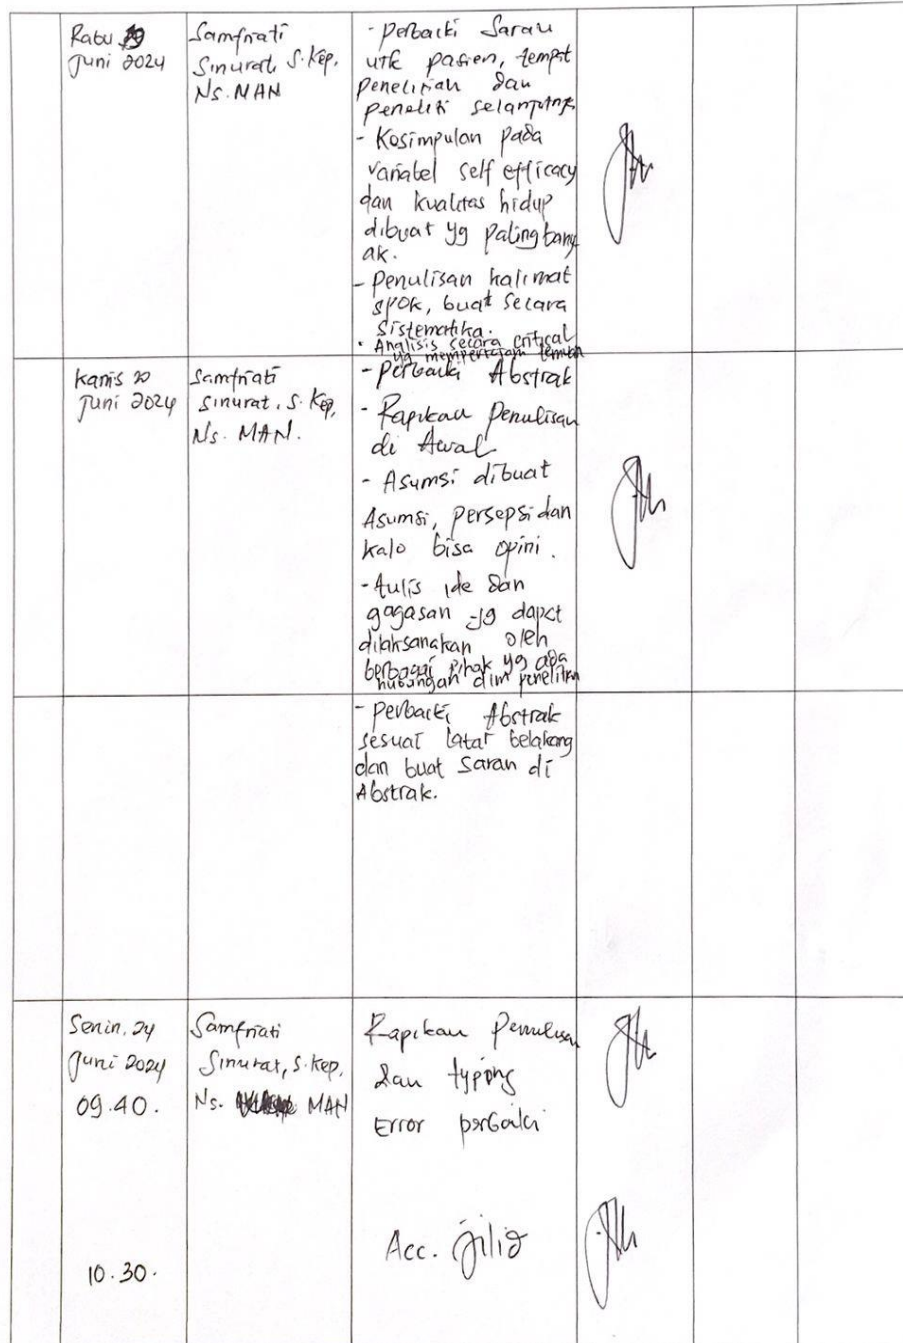 Rabu 19
Juni 2024
Samfriati
Sinurat, S.Kep,
Ns. MAN
- Perbaiki Saran
utk pasien, tempat
penelitian dan
peneliti selanjutnya
- Kesimpulan pada
variabel self efficacy
dan kualitas hidup
dibuat yg paling bany
ak.
- Penulisan kalimat
SPOK, buat secara
Sistematika.
• Analisis secara critical
yg mempertajam temuan
Kamis 20
Juni 2024
Samfriati
Sinurat, S.Kep,
Ns. MAN.
- Perbaiki Abstrak
- Rapikan Penulisan
di Awal
- Asumsi dibuat
Asumsi, persepsi dan
kalo bisa opini.
- tulis ide dan
gagasan yg dapat
dilaksanakan oleh
berbagai pihak yg ada
hubungan dlm penelitian
- Perbaiki Abstrak
sesuai latar belakang
dan buat Saran di
Abstrak.
Senin, 24
Juni 2024
09.40.
Samfriati
Sinurat, S.Kep,
Ns. MAN
Rapikan Penulisan
dan typing
Error perbaiki
10.30.
Acc. Jilid